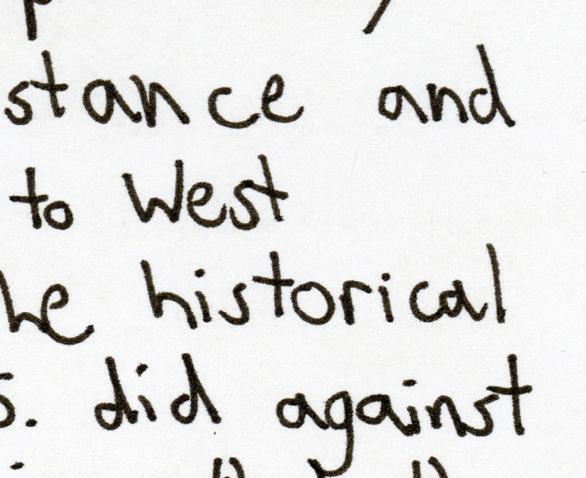 stance and
to West
he historical
s. did against